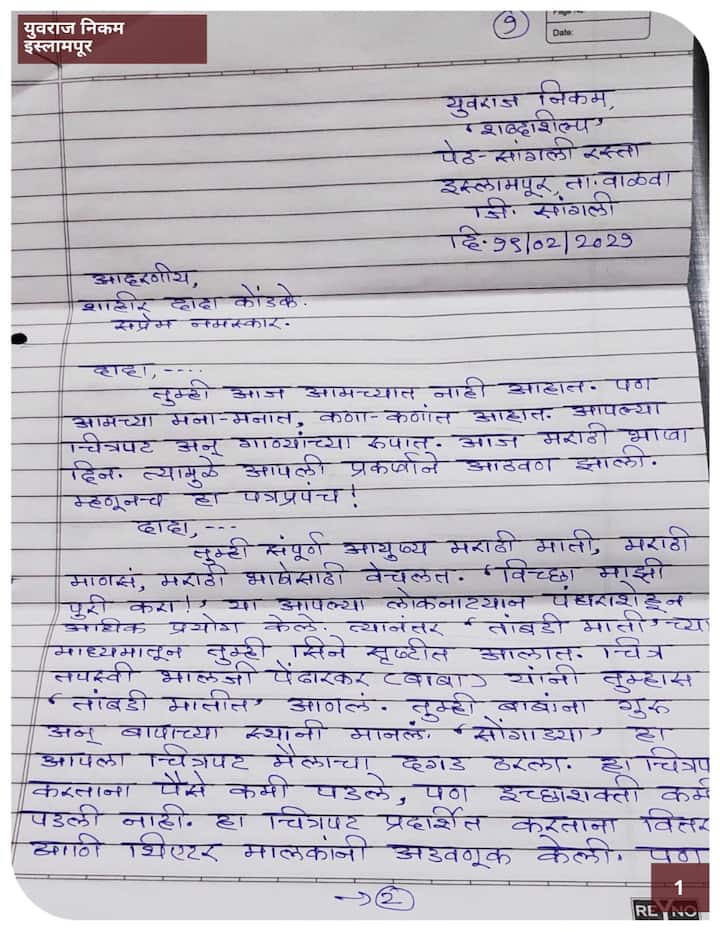 युवराज निकम
इस्लामपूर
१
Date:
युवराज निकम,
'शब्दशिल्प'
पेठ-सांगली रस्ता
इस्लामपूर, ता. वाळवा
जि. सांगली
दि. १९/०२/२०२१
आदरणीय,
शाहीर दादा कोंडके.
सप्रेम नमस्कार.
दादा,----
तुम्ही आज आमच्यात नाही आहात. पण
आमच्या मना-मनात, कणा-कणांत आहात. आपल्या
चित्रपट अन् गाण्यांच्या रुपात. आज मराठी भाषा
दिन. त्यामुळे आपली प्रकर्षाने आठवण झाली.
म्हणूनच हा पत्रप्रपंच!
दादा,---
तुम्ही संपूर्ण आयुष्य मराठी माती, मराठी
माणसं, मराठी भाषेसाठी वेचलत. 'विच्छा माझी
पुरी करा!' या आपल्या लोकनाट्यान पंधराशेहून
अधिक प्रयोग केले. त्यानंतर 'तांबडी माती' च्या
माध्यमातून तुम्ही सिने सृष्टीत आलात. चित्र
तपस्वी भालजी पेंढारकर (बाबा) यांनी तुम्हास
'तांबडी मातीत' आणलं. तुम्ही बाबांना गुरु
अन् बापाच्या स्थानी मानलं. 'सोंगाड्या' हा
आपला चित्रपट मैलाचा दगड ठरला. हा चित्रप
करताना पैसे कमी पडले, पण इच्छाशक्ती कमी
पडली नाही. हा चित्रपट प्रदर्शित करताना वितर
आणि थिएटर मालकांनी अडवणूक केली. पण
→ २
1